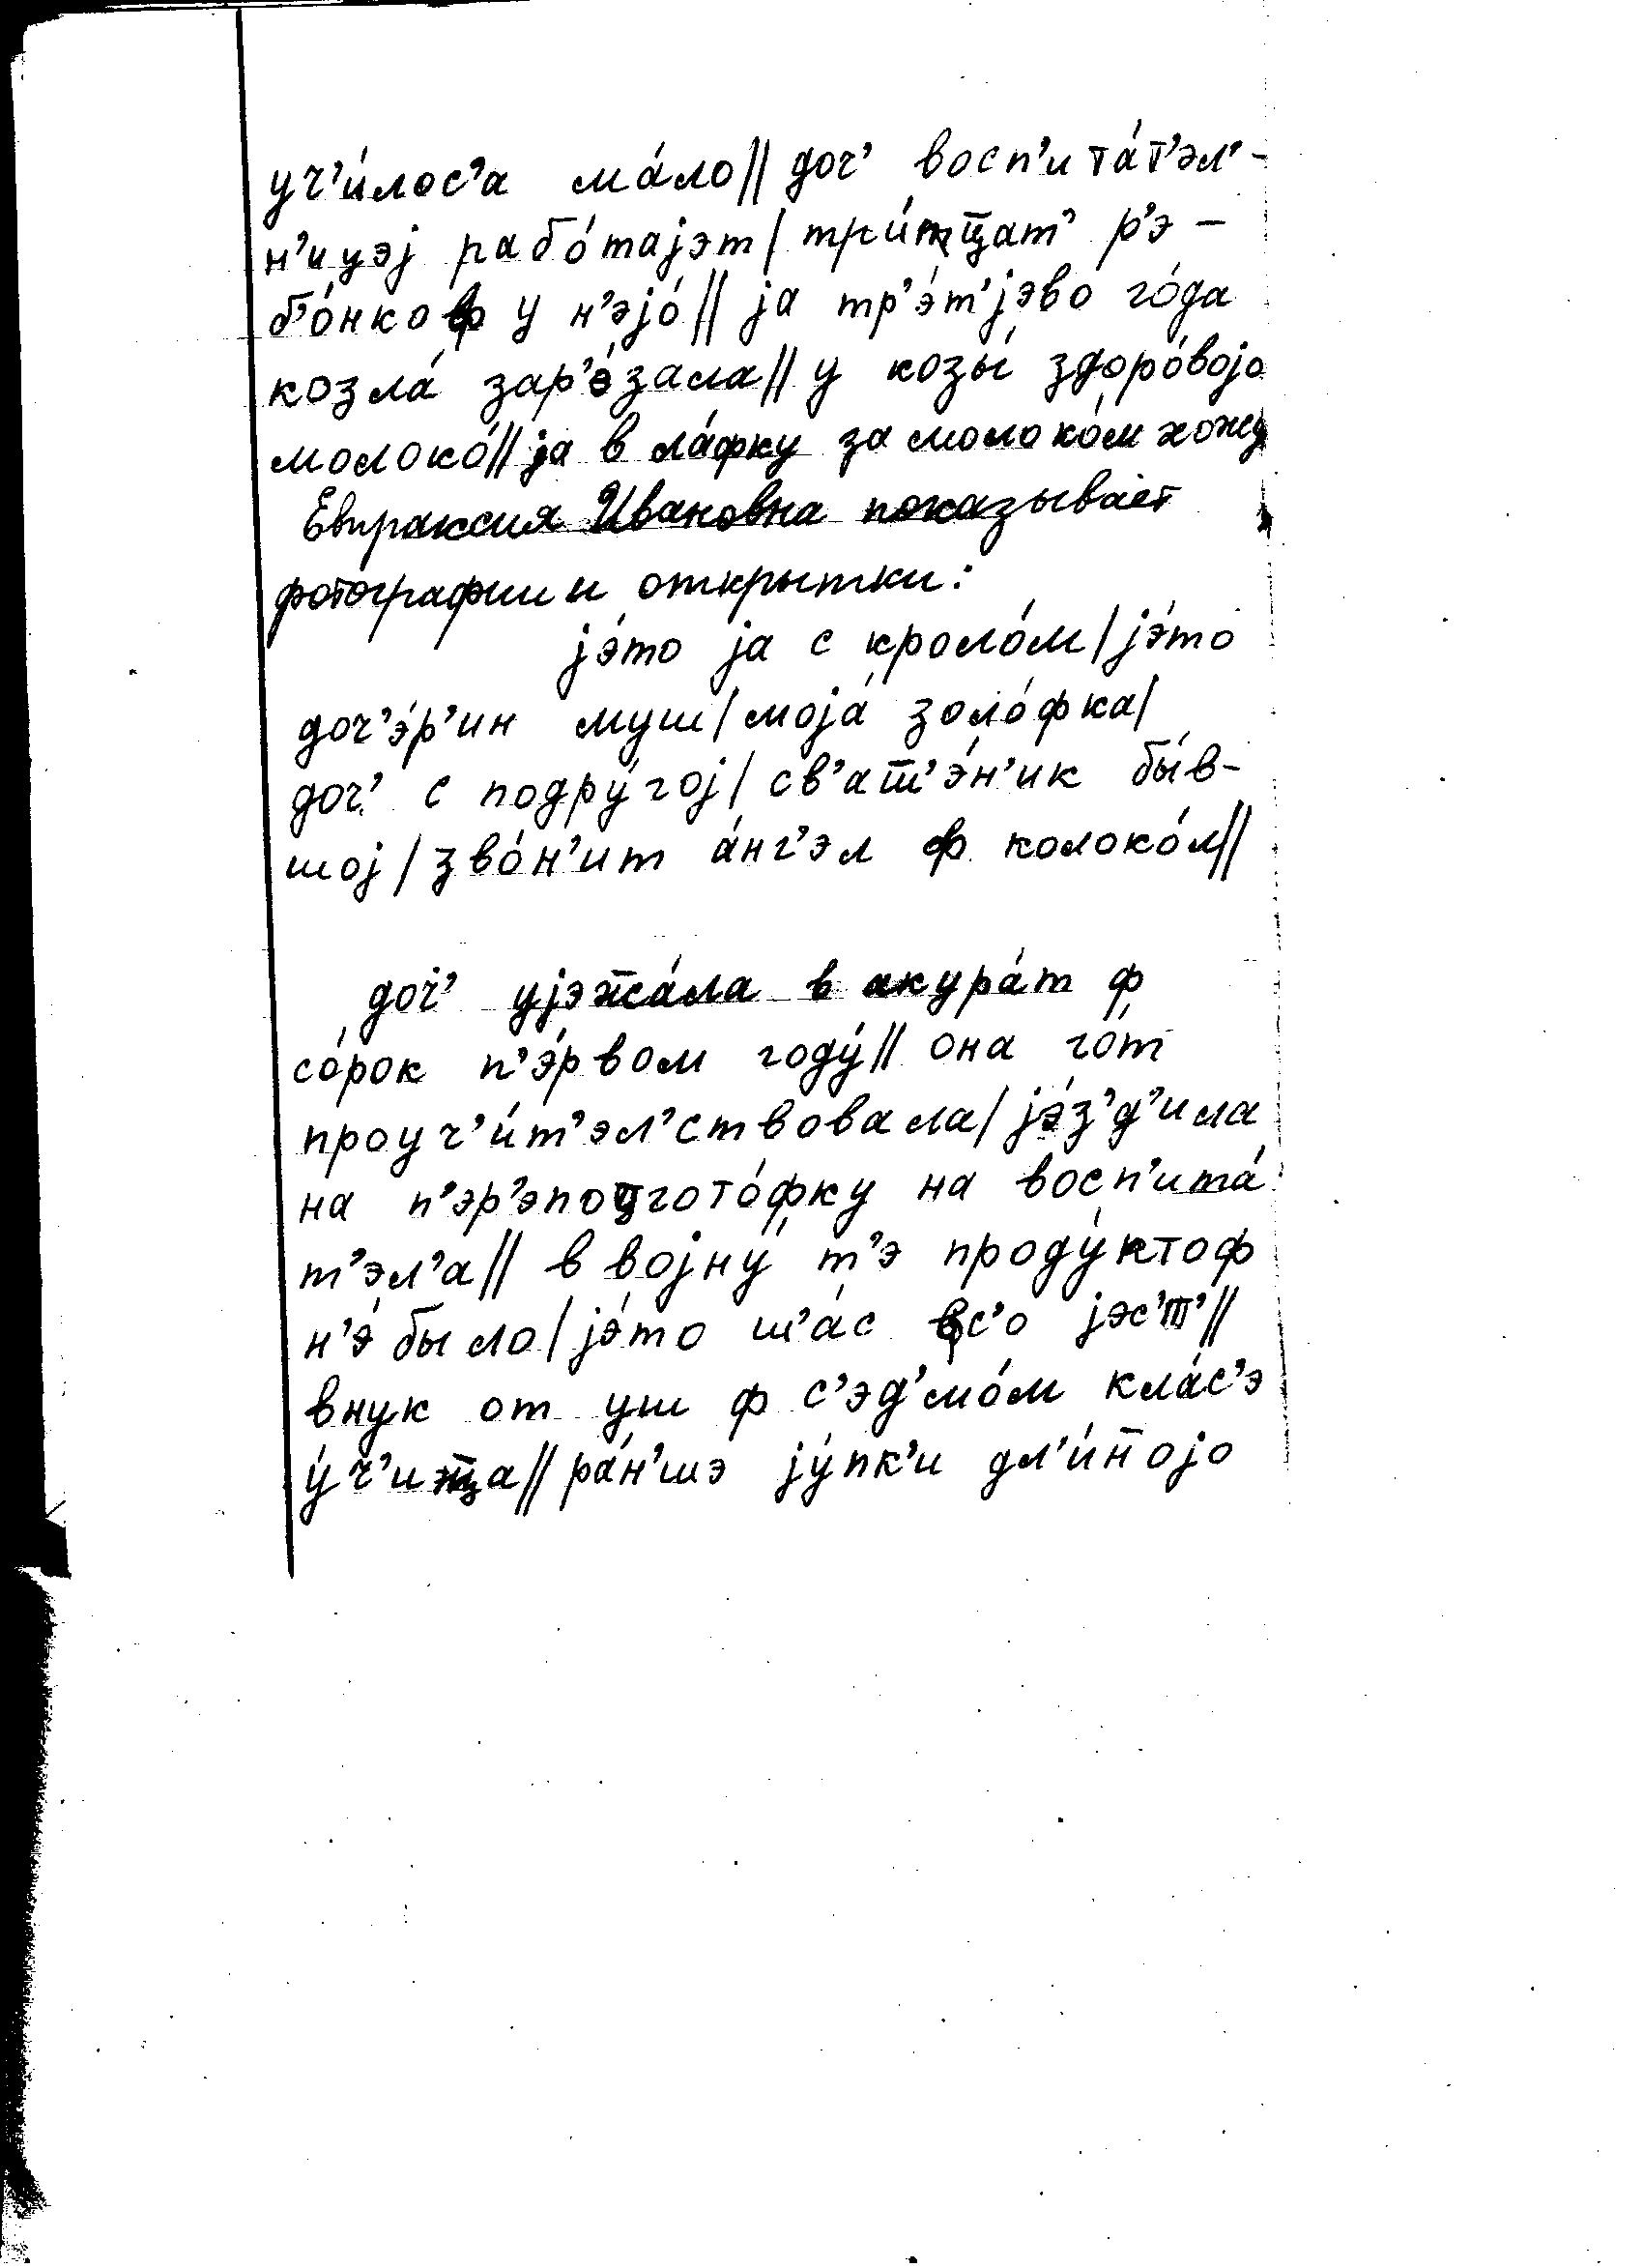 уч’и́лос’а ма́ло || доч’ восп’ита́т’эл’-
н’ицэј рабо́тајэт | три́ц̄ат’ р’э-
б’о́нкоф у н’эjо́ || jа тр’э́т’jэво го́да
козла́ зар’э́зала || у козы́ здоро́воjо
молоко́ || jа в ла́фку за молоко́м хожу
Евпраксия Ивановна показывает
фотографии и открытки:
jэ́то jа с кроло́м | jэ́то
доч’э́р’ин муш | моjа́ золо́фка |
доч’ с подру́гоj | св’ат̄’э́н’ик бы́в-
шоj | зво́н’ит а́нг’эл ф колоко́л ||
доч’ уjэж̄а́ла в акура́т ф
со́рок п’э́рвом году́ || она го́т
проуч’и́т’эл’ствовала | jэ́з’д’ила
на п’эр’эпоцгото́фку на восп’ита́
т’эл’а || в воjну́ т’э проду́ктоф
н’э́ было | jэ́то ш’а́с вс’о jэс’т̄’ ||
внук от уш ф с’эд’мо́м кла́с’э
у́ч’иц̄а || ра́н’шэ jу́пк’и дл’и́н̄оjо